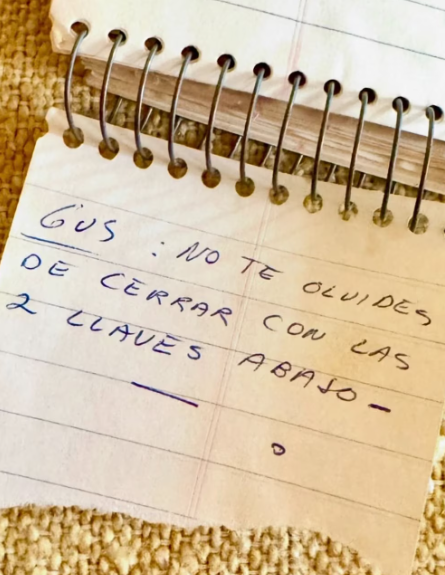 GUS : NO TE OLVIDES
DE CERRAR CON LAS
2 LLAVES ABAJO-